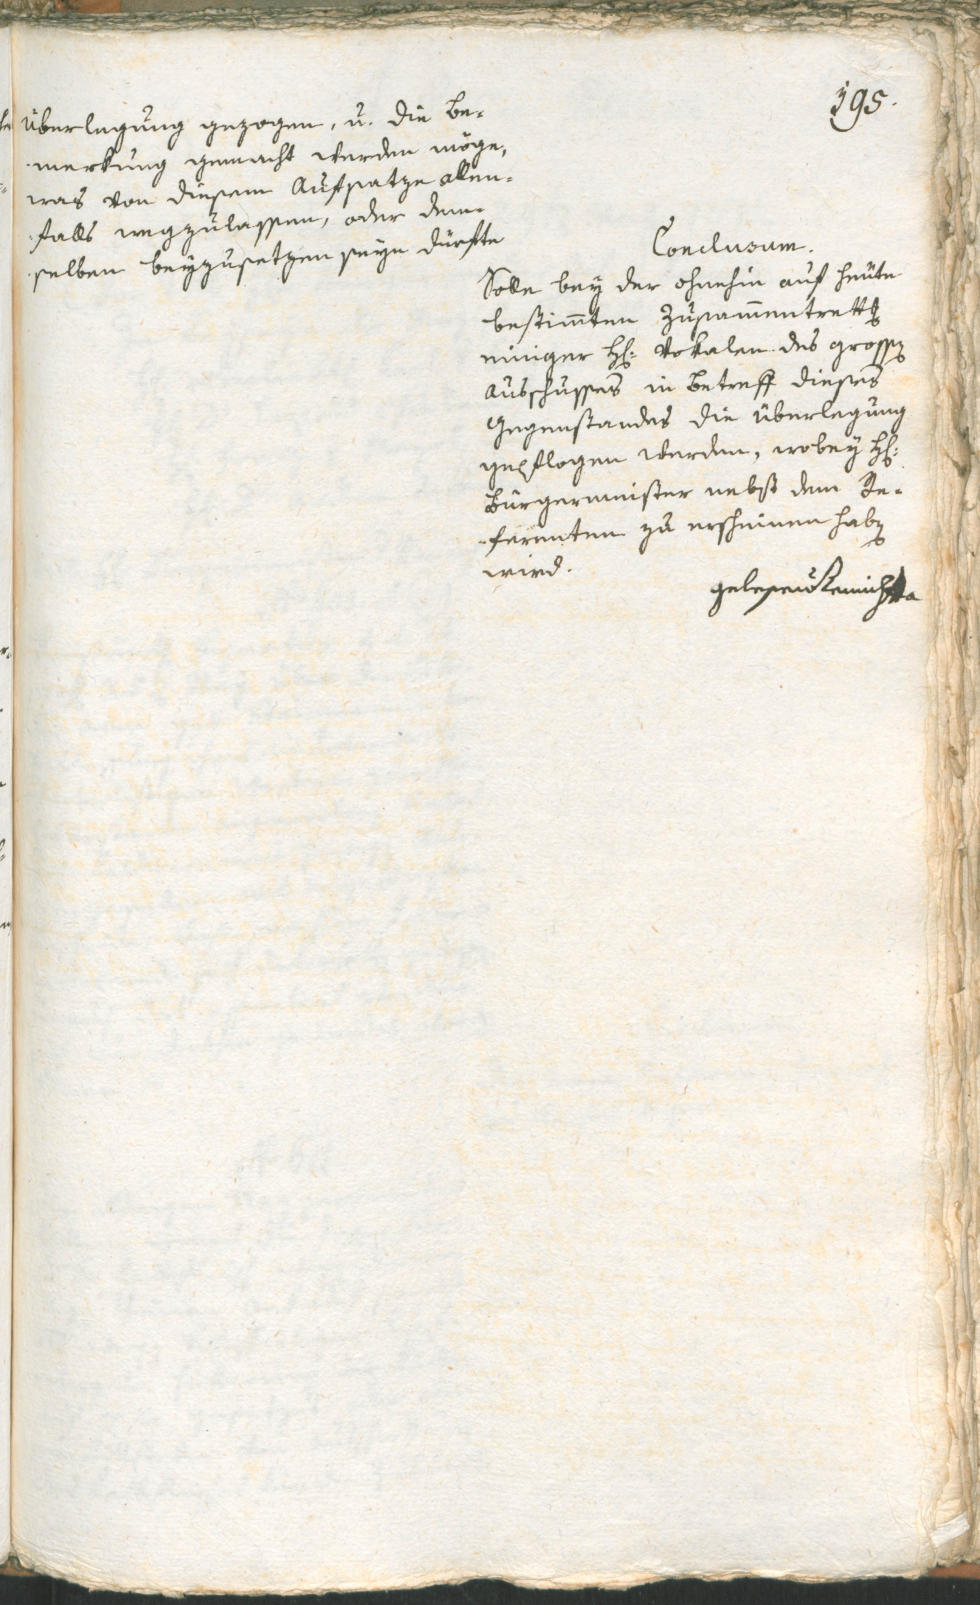 195.
Überlegung gezogen, u. die Be-
merkung gemacht werden möge,
was von diesem Aufsatze allen-
falls wegzulassen, oder dem-
selben beyzusetzen seyn dürfte
Conclusum.
Solle bey der ohnehin auf heute
bestim̅ten Zusam̅entrettg
einiger HH: Vokalen des grossen
Ausschusses in Betreff dieses
Gegenstandes die Überlegung
gepflogen werden, wobey HH:
Bürgermeister nebst dem Re-
ferenten zu erscheinen haben
wird.
gelesen